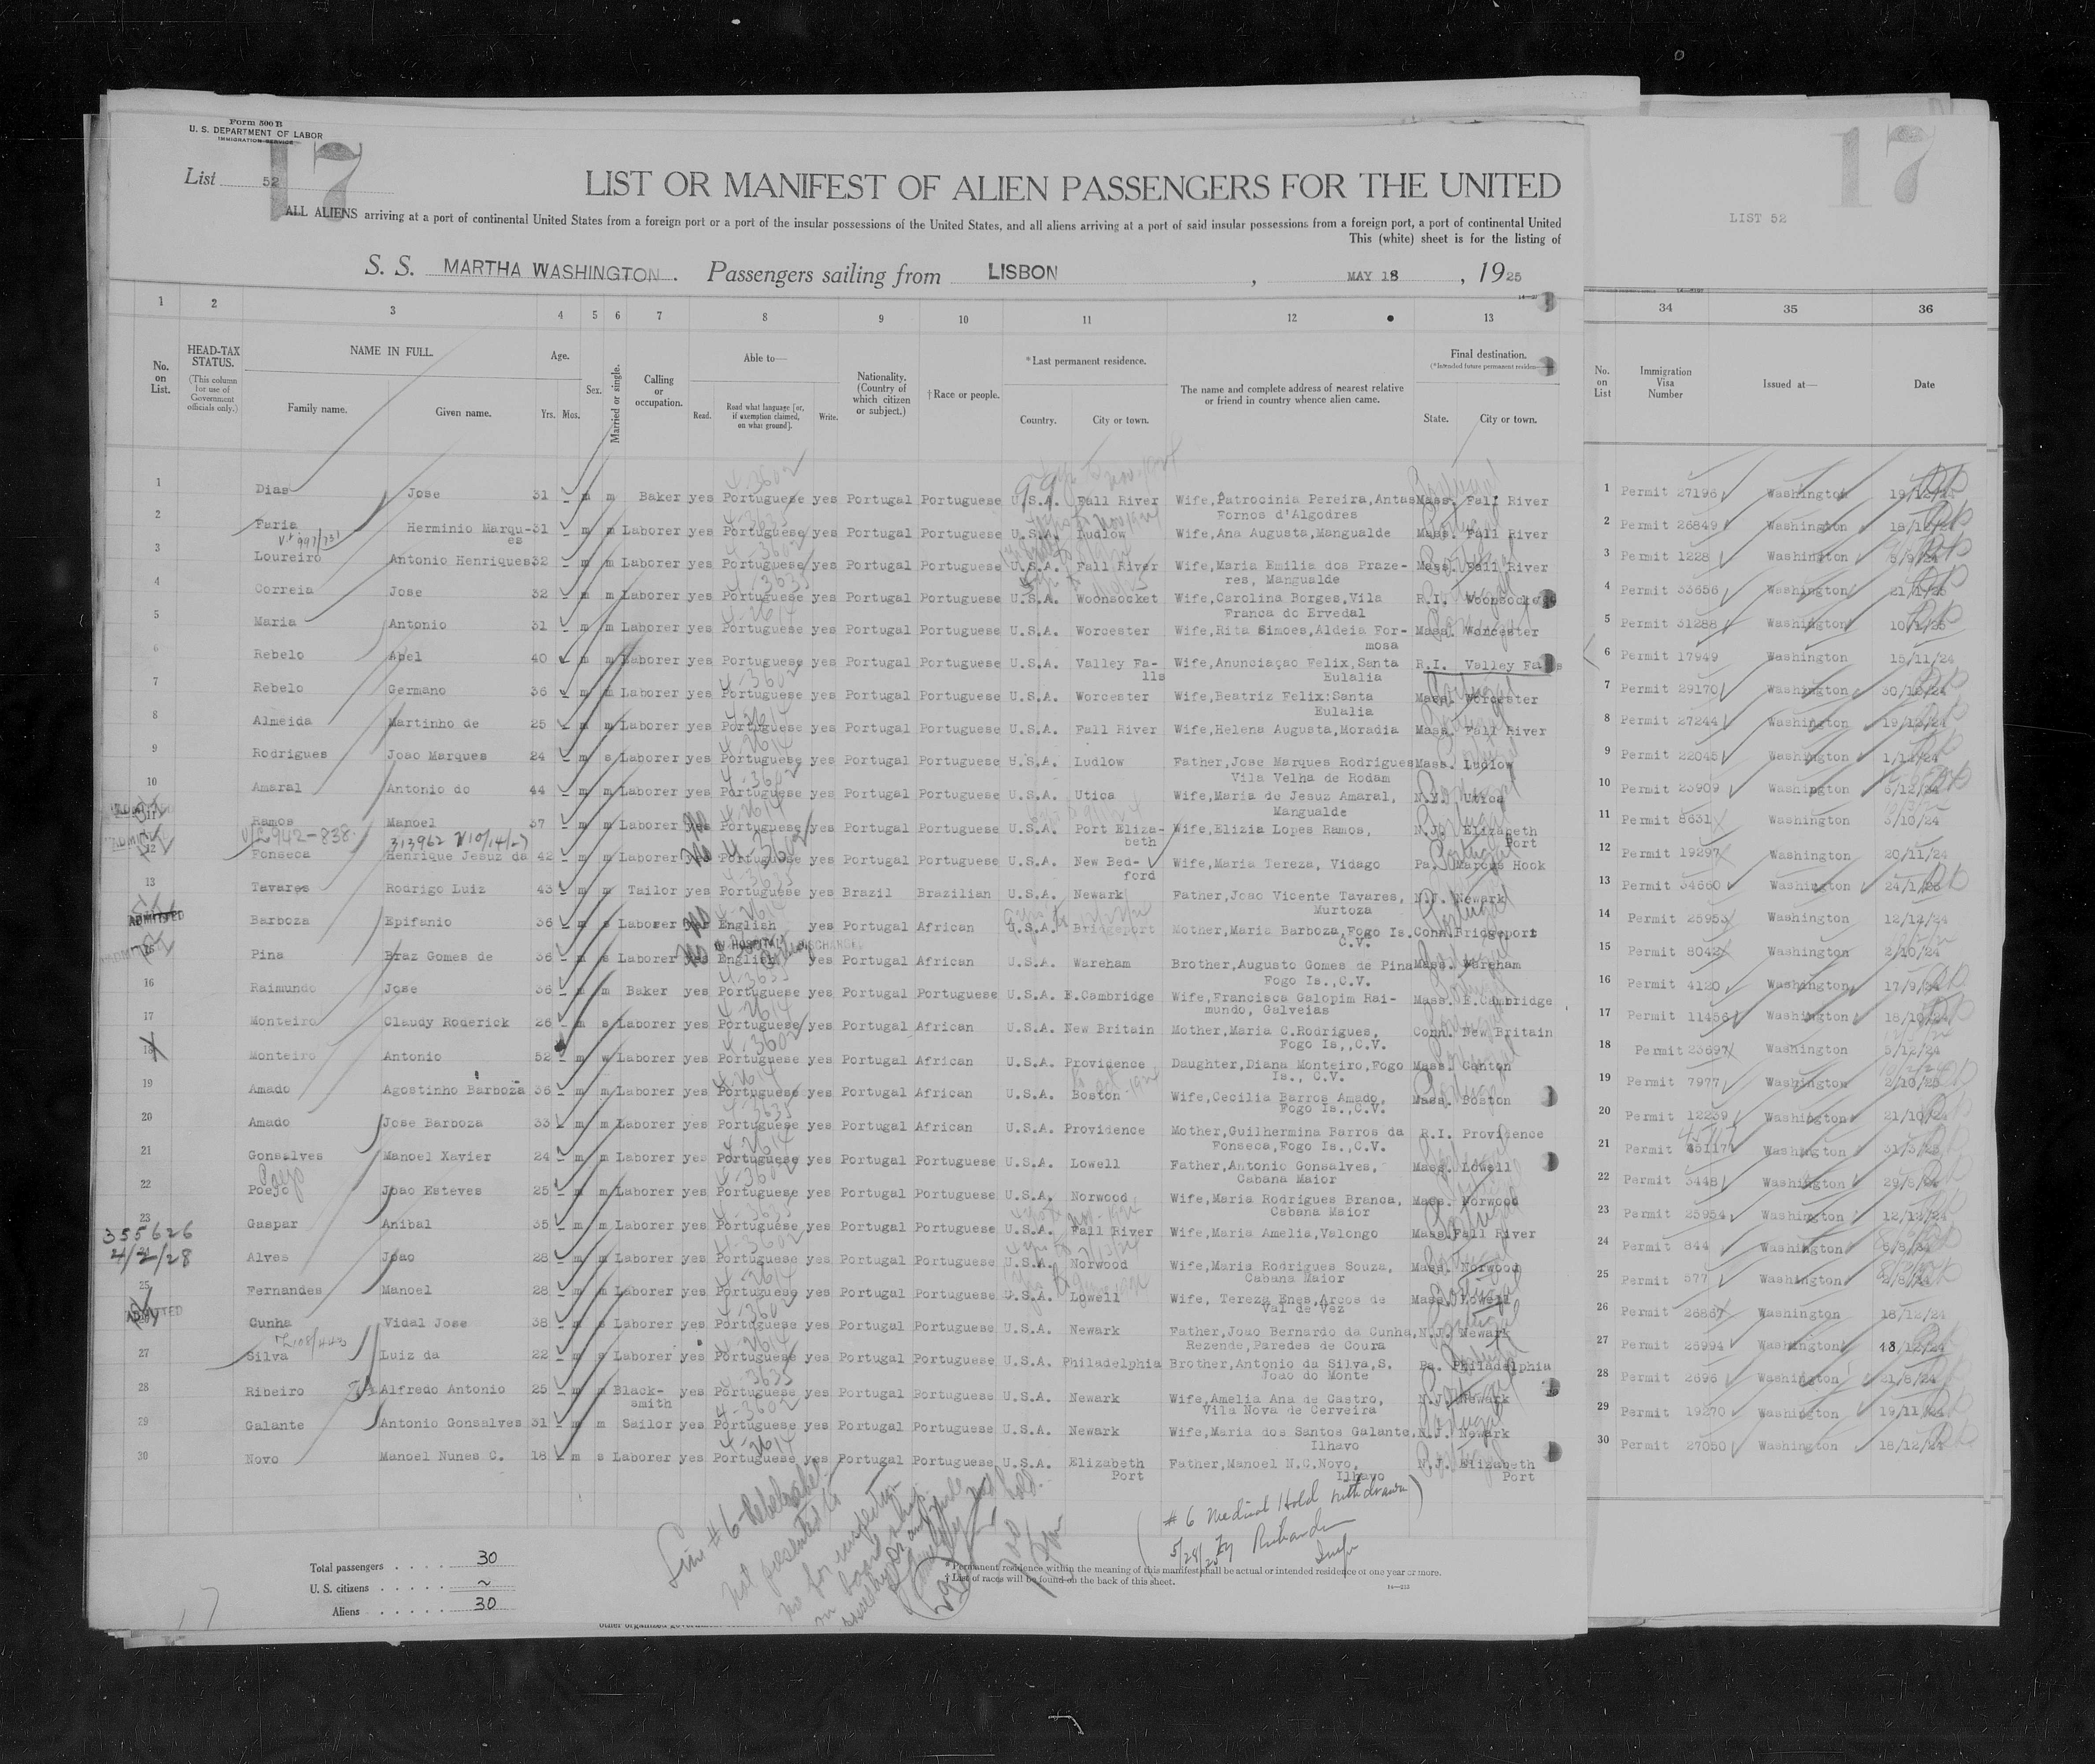 Form 500 B
U. S. DEPARTMENT OF LABOR
IMMIGRATION SERVICE
17
List 52
LIST OR MANIFEST OF ALIEN PASSENGERS FOR THE UNITED
ALL ALIENS arriving at a port of continental United States from a foreign port or a port of the insular possessions of the United States, and all aliens arriving at a port of said insular possessions from a foreign port, a port of continental United
This (white) sheet is for the listing of
S. S. MARTHA WASHINGTON. Passengers sailing from LISBON, MAY 18, 1925
1 2 3 4 5 6 7 8 9 10 11 12 13
No. on List.
HEAD-TAX STATUS.
(This column for use of Government officials only.)
NAME IN FULL.
Family name. Given name.
Age.
Yrs. Mos.
Sex.
Married or single.
Calling or occupation.
Able to—
Read. Read what language [or, if exemption claimed, on what ground]. Write.
Nationality. (Country of which citizen or subject.)
†Race or people.
*Last permanent residence.
Country. City or town.
The name and complete address of nearest relative or friend in country whence alien came.
Final destination.
(*Intended future permanent residen
State. City or town.
1 Dias Jose 31 m m Baker yes Portuguese yes Portugal Portuguese U.S.A. Fall River Wife, Patrocinia Pereira, Antas Mass. Fall River
Fornos d'Algodres
2 Faria Herminio Marqu- 31 m m Laborer yes Portuguese yes Portugal Portuguese U.S.A. Ludlow Wife,Ana Augusta,Mangualde Mass. Fall River
es
3 Loureiro Antonio Henriques 32 m m Laborer yes Portuguese yes Portugal Portuguese U.S.A. Fall River Wife,Maria Emilia dos Praze- Mass. Fall River
res, Mangualde
4 Correia Jose 32 m m Laborer yes Portuguese yes Portugal Portuguese U.S.A. Woonsocket Wife,Carolina Borges,Vila R.I. Woonsocke
Franca do Ervedal
5 Maria Antonio 31 m m Laborer yes Portuguese yes Portugal Portuguese U.S.A. Worcester Wife,Rita Simoes,Aldeia For- Mass. Worcester
mosa
6 Rebelo Abel 40 m m Laborer yes Portuguese yes Portugal Portuguese U.S.A. Valley Fa- Wife,Anunciaçao Felix,Santa R.I. Valley Fa s
lls Eulalia
7 Rebelo Germano 36 m m Laborer yes Portuguese yes Portugal Portuguese U.S.A. Worcester Wife,Beatriz Felix:Santa Mass. Worcester
Eulalia
8 Almeida Martinho de 25 m m Laborer yes Portuguese yes Portugal Portuguese U.S.A. Fall River Wife,Helena Augusta,Moradia Mass. Fall River
9 Rodrigues Joao Marques 24 m s Laborer yes Portuguese yes Portugal Portuguese U.S.A. Ludlow Father,Jose Marques Rodrigues Mass. Ludlow
Vila Velha de Rodam
10 Amaral Antonio do 44 m m Laborer yes Portuguese yes Portugal Portuguese U.S.A. Utica Wife,Maria de Jesuz Amaral, N.Y. Utica
Mangualde
11 Ramos Manoel 37 m m Laborer yes Portuguese yes Portugal Portuguese U.S.A. Port Eliza- Wife,Elizia Lopes Ramos, N.J. Elizabeth
beth Port
V/L 942-838. 313962 V10/14/27
ADMITTED
12 Fonseca Henrique Jesuz da 42 m m Laborer yes Portuguese yes Portugal Portuguese U.S.A. New Bed- Wife,Maria Tereza, Vidago Pa. Marcus Hook
ford
13 Tavares Rodrigo Luiz 43 m m Tailor yes Portuguese yes Brazil Brazilian U.S.A. Newark Father,Joao Vicente Tavares, N.J. Newark
Murtoza
ADMITTED
Barboza Epifanio 36 m s Laborer English yes Portugal African U.S.A. Bridgeport Mother,Maria Barboza,Fogo Is. Conn.Bridgeport
C.V.
IN HOSPITAL DISCHARGED
15 Pina Braz Gomes de 36 m s Laborer yes English yes Portugal African U.S.A. Wareham Brother,Augusto Gomes de Pina Mass. Wareham
Fogo Is.,C.V.
16 Raimundo Jose 36 m m Baker yes Portuguese yes Portugal Portuguese U.S.A. E.Cambridge Wife,Francisca Galopim Rai- Mass. E.Cambridge
mundo, Galveias
17 Monteiro Claudy Roderick 26 m s Laborer yes Portuguese yes Portugal African U.S.A. New Britain Mother,Maria C.Rodrigues, Conn. New Britain
Fogo Is,,C.V.
18 Monteiro Antonio 52 m w Laborer yes Portuguese yes Portugal African U.S.A. Providence Daughter,Diana Monteiro,Fogo Mass. Canton
Is., C.V.
19 Amado Agostinho Barboza 36 m m Laborer yes Portuguese yes Portugal African U.S.A. Boston Wife,Cecilia Barros Amado, Mass. Boston
Fogo Is.,C.V.
20 Amado Jose Barboza 33 m m Laborer yes Portuguese yes Portugal African U.S.A. Providence Mother,Guilhermina Barros da R.I. Providence
Fonseca,Fogo Is.,C.V.
21 Gonsalves Manoel Xavier 24 m m Laborer yes Portuguese yes Portugal Portuguese U.S.A. Lowell Father,Antonio Gonsalves, Mass. Lowell
Cabana Maior
22 Poejo Joao Esteves 25 m m Laborer yes Portuguese yes Portugal Portuguese U.S.A. Norwood Wife,Maria Rodrigues Branca, Mass. Norwood
Cabana Maior
23 Gaspar Anibal 35 m m Laborer yes Portuguese yes Portugal Portuguese U.S.A. Fall River Wife,Maria Amelia,Valongo Mass. Fall River
355626
4/2/28
Alves Joao 28 m m Laborer yes Portuguese yes Portugal Portuguese U.S.A. Norwood Wife,Maria Rodrigues Souza, Mass. Norwood
Cabana Maior
25 Fernandes Manoel 28 m m Laborer yes Portuguese yes Portugal Portuguese U.S.A. Lowell Wife, Tereza Enes,Arcos de Mass. Lowell
Val de Vez
ADMITTED
Cunha Vidal Jose 38 m s Laborer yes Portuguese yes Portugal Portuguese U.S.A. Newark Father,Joao Bernardo da Cunha, N.J. Newark
Rezende,Paredes de Coura
27 Silva Luiz da 22 m s Laborer yes Portuguese yes Portugal Portuguese U.S.A. Philadelphia Brother,Antonio da Silva,S. Pa. Philadelphia
Joao do Monte
28 Ribeiro Alfredo Antonio 25 m m Black- yes Portuguese yes Portugal Portuguese U.S.A. Newark Wife,Amelia Ana de Castro, N.J. Newark
smith Vila Nova de Cerveira
29 Galante Antonio Gonsalves 31 m m Sailor yes Portuguese yes Portugal Portuguese U.S.A. Newark Wife,Maria dos Santos Galante, N.J. Newark
Ilhavo
30 Novo Manoel Nunes C. 18 m s Laborer yes Portuguese yes Portugal Portuguese U.S.A. Elizabeth Father,Manoel N.C.Novo, N.J. Elizabeth
Port Ilhavo Port
Line #6 Rebelo Abel
not presented to
me for inspection
on board ship
#6 Medical Hold withdrawn)
5/28/25
Total passengers . . . . . 30
U. S. citizens . . . . . ~
Aliens . . . . . 30
*Permanent residence within the meaning of this manifest shall be actual or intended residence of one year or more.
†List of races will be found on the back of this sheet.
14—213
17
LIST 52
34 35 36
No. on List
Immigration Visa Number
Issued at—
Date
1 Permit 27196 Washington 19/12/24
2 Permit 26849 Washington 18/12/24
3 Permit 1228 Washington 5/9/24
4 Permit 33656 Washington 21/1/25
5 Permit 31288 Washington 10/1/25
6 Permit 17949 Washington 15/11/24
7 Permit 29170 Washington 30/12/24
8 Permit 27244 Washington 19/12/24
9 Permit 22045 Washington 1/12/24
10 Permit 23909 Washington 6/12/24
11 Permit 8631 Washington 3/10/24
12 Permit 19297 Washington 20/11/24
13 Permit 34660 Washington 24/1/25
14 Permit 25953 Washington 12/12/24
15 Permit 8042 Washington 2/10/24
16 Permit 4120 Washington 17/9/24
17 Permit 11456 Washington 18/10/24
18 Permit 23697 Washington 5/12/24
19 Permit 7977 Washington 2/10/25
20 Permit 12239 Washington 21/10/24
21 Permit 45117 Washington 31/3/25
22 Permit 3448 Washington 29/8/24
23 Permit 25954 Washington 12/12/24
24 Permit 844 Washington 6/8/24
25 Permit 577 Washington 2/8/24
26 Permit 26867 Washington 18/12/24
27 Permit 25994 Washington 13/12/24
28 Permit 2696 Washington 21/8/24
29 Permit 19270 Washington 19/11/24
30 Permit 27050 Washington 18/12/24